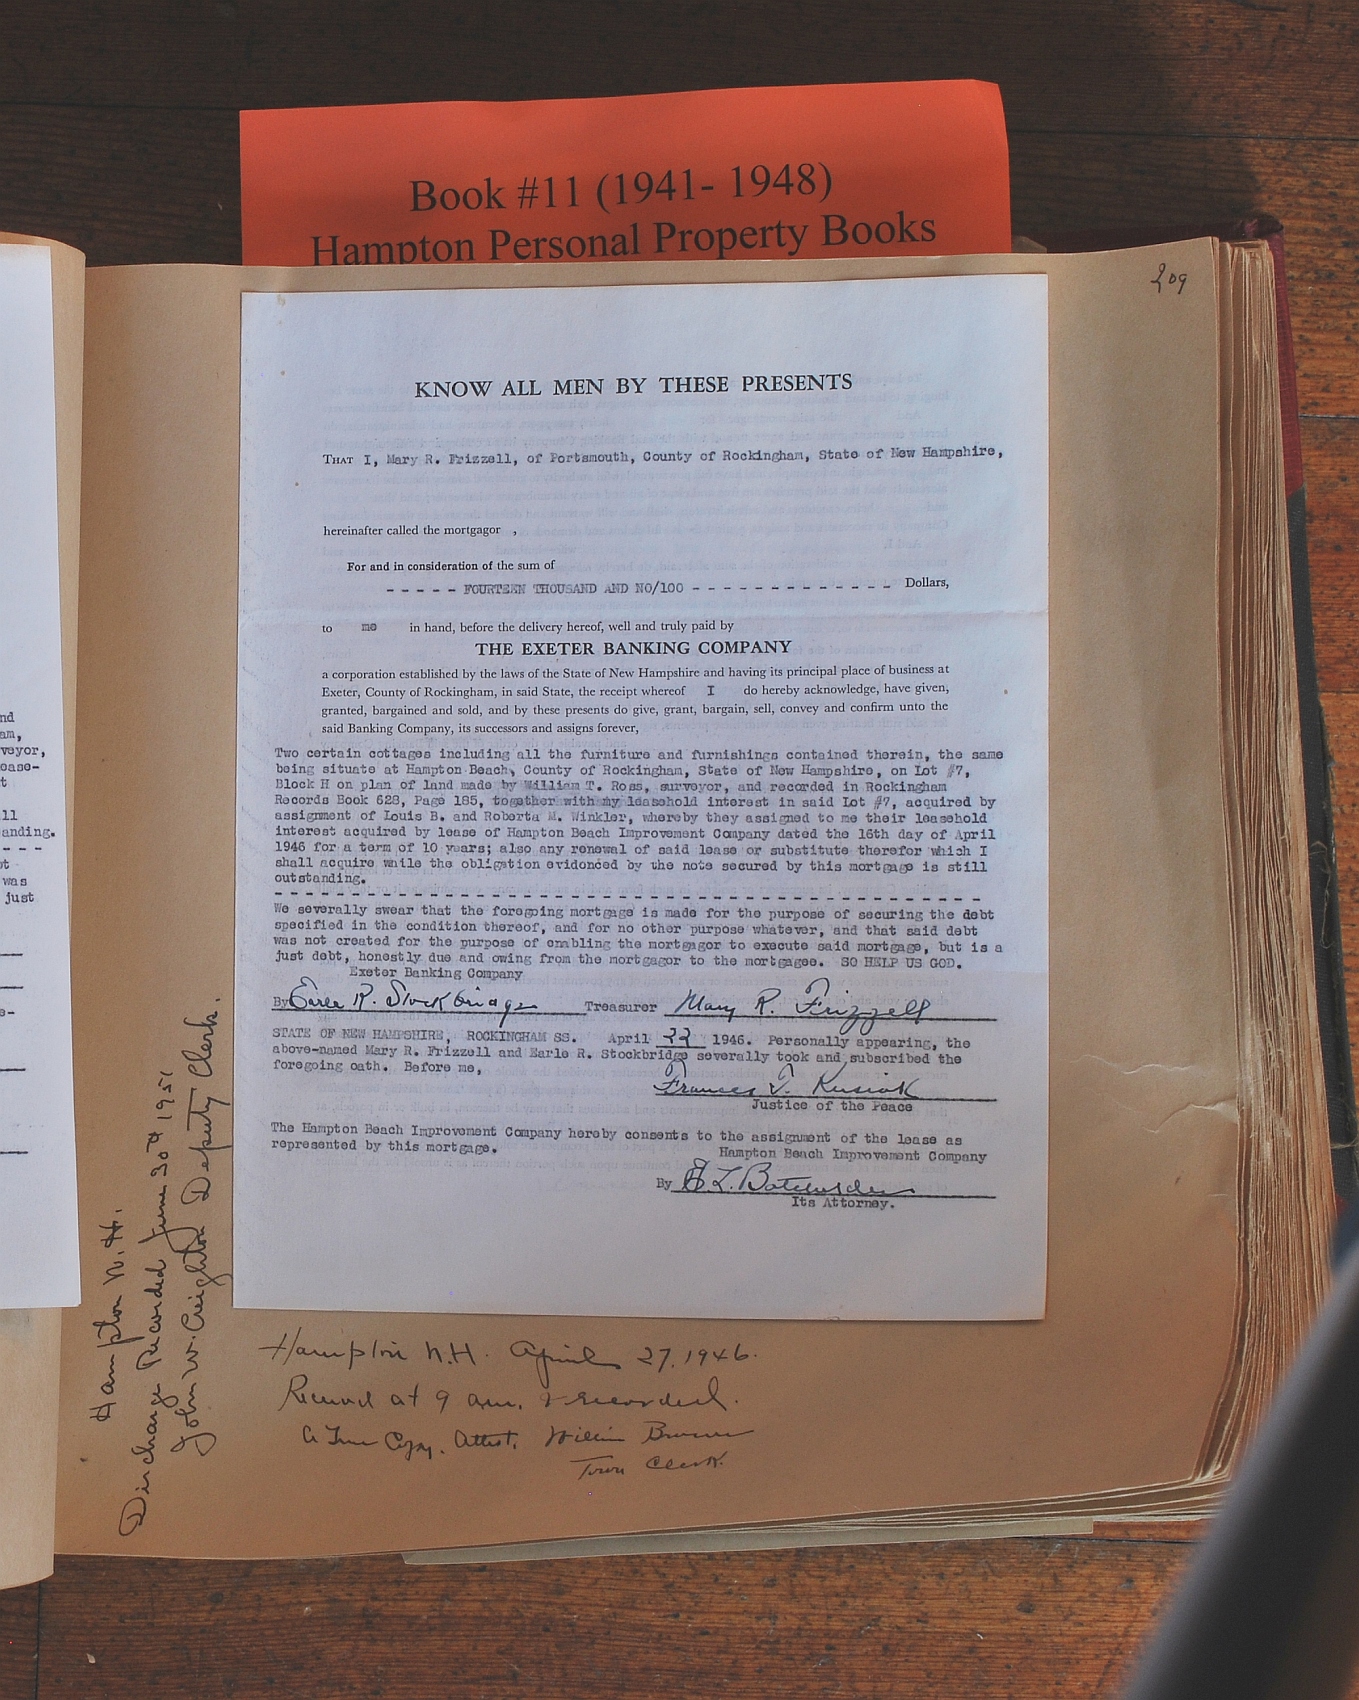 Book #11 (1941- 1948)
Hampton Personal Property Books
209
KNOW ALL MEN BY THESE PRESENTS
THAT I, Mary R. Frizzell, of Portsmouth, County of Rockingham, State of New Hampshire,
hereinafter called the mortgagor ,
For and in consideration of the sum of
- - - - - FOURTEEN THOUSAND AND NO/100 - - - - - - - - - - - - - Dollars,
to me in hand, before the delivery hereof, well and truly paid by
THE EXETER BANKING COMPANY
a corporation established by the laws of the State of New Hampshire and having its principal place of business at
Exeter, County of Rockingham, in said State, the receipt whereof I do hereby acknowledge, have given,
granted, bargained and sold, and by these presents do give, grant, bargain, sell, convey and confirm unto the
said Banking Company, its successors and assigns forever,
Two certain cottages including all the furniture and furnishings contained therein, the same
being situate at Hampton Beach, County of Rockingham, State of New Hampshire, on Lot #7,
Block H on plan of land made by William T. Ross, surveyor, and recorded in Rockingham
Records Book 628, Page 185, together with my leasehold interest in said Lot #7, acquired by
assignment of Louis B. and Roberta M. Winkler, whereby they assigned to me their leasehold
interest acquired by lease of Hampton Beach Improvement Company dated the 15th day of April
1946 for a term of 10 years; also any renewal of said lease or substitute therefor which I
shall acquire while the obligation evidenced by the note secured by this mortgage is still
outstanding.
- - - - - - - - - - - - - - - - - - - - - - - - - - - - - - - - - - - - - - - - - - - -
We severally swear that the foregoing mortgage is made for the purpose of securing the debt
specified in the condition thereof, and for no other purpose whatever, and that said debt
was not created for the purpose of enabling the mortgagor to execute said mortgage, but is a
just debt, honestly due and owing from the mortgagor to the mortgagee. SO HELP US GOD.
Exeter Banking Company
By Earle R. Stockbridge Treasurer Mary R. Frizzell
STATE OF NEW HAMPSHIRE, ROCKINGHAM SS. April 22 1946. Personally appearing, the
above-named Mary R. Frizzell and Earle R. Stockbridge severally took and subscribed the
foregoing oath. Before me,
Frances T. Kusiak
Justice of the Peace
The Hampton Beach Improvement Company hereby consents to the assignment of the lease as
represented by this mortgage.
Hampton Beach Improvement Company
By L. Batchelder
Its Attorney.
Hampton N.H. April 27, 1946.
Received at 9 a.m. & recorded.
A True Copy. Attest, William Brown
Town Clerk.
Hampton N. H.
Discharge Recorded June 30th 1951
John W. Creighton Deputy Clerk.
nd
am,
veyor,
ease-
t
ll
anding.
- - -
t
was
just
e-